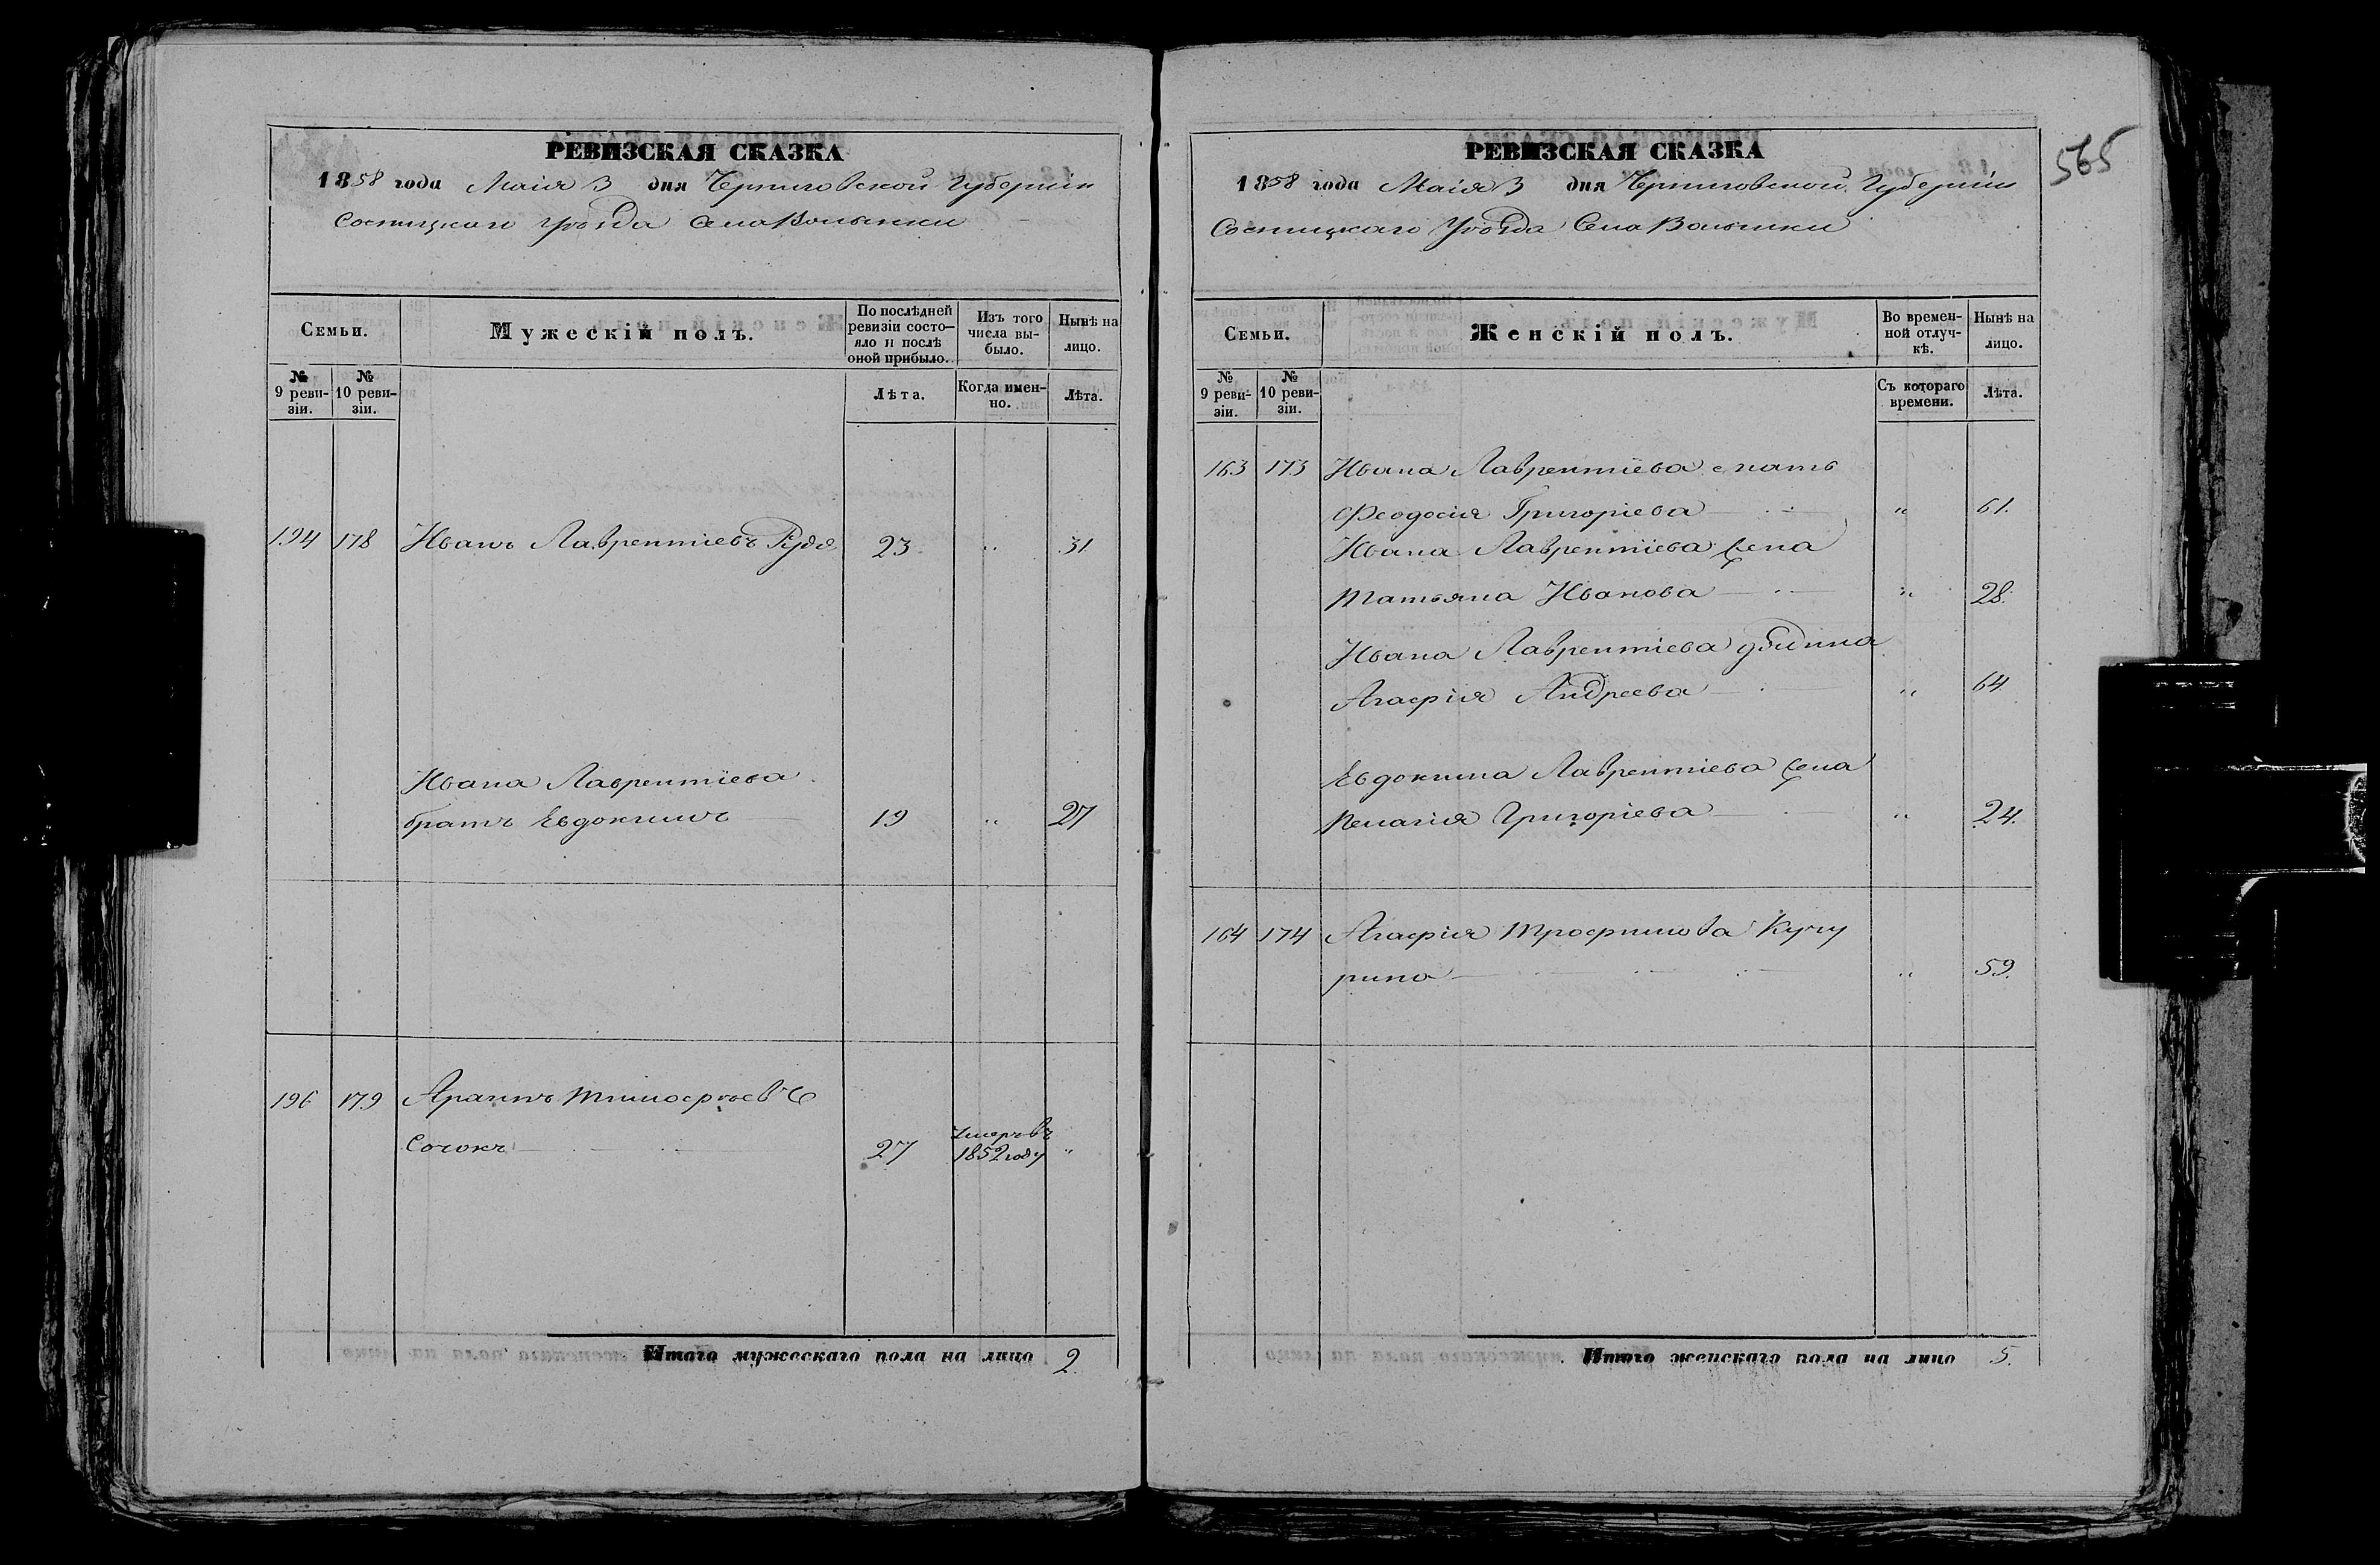 РЕВИЗСКАЯ СКАЗКА
1858 года Маія 3 дня Черниговской Губерніи
Сосницкаго Уѣзда Села Волынки
Семьи.
Мужескій полъ.
По послѣдней ревизіи состо-яло и послѣ оной прибыло.
Изъ того числа вы-было.
Нынѣ на лицо.
№ 9 реви-зіи.
№ 10 реви-зіи.
Лѣта.
Когда имен-но.
Лѣта.
194 178 Иванъ Лаврентіевъ Руда 23 " 31
Ивана Лаврентіева
братъ Евдокимъ 19 " 27
196 179 Архипъ Тимофѣевъ
Сочокъ 27 Умеръ въ 1852 году "
Итого мужескаго пола на лицо 2.
565
РЕВИЗСКАЯ СКАЗКА
1858 года Маія 3 дня Черниговской Губерніи
Сосницкаго Уѣзда Села Волынки
Семьи.
Женскій полъ.
Во времен-ной отлуч-кѣ.
Нынѣ на лицо.
№ 9 реви-зіи.
№ 10 реви-зіи.
Съ котораго времени.
Лѣта.
163 173 Ивана Лаврентіева мать
Феодосія Григоріева " 61.
Ивана Лаврентіева жена
Татьяна Иванова " 28.
Ивана Лаврентіева
Агафія Андреева " 64.
Евдокима Лаврентіева жена
Пелагія Григоріева " 24.
164 174 Агафія Трофимова Кучу
рина " 59.
Итого женскаго пола на лицо 5.